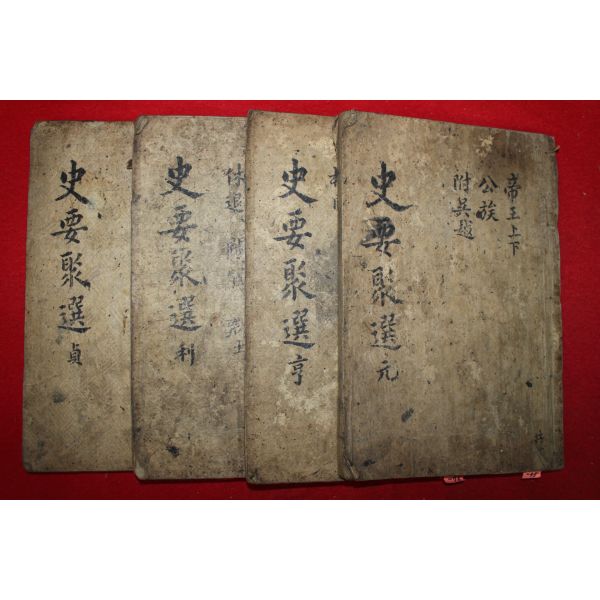 史要聚選 元
帝王上下
公族
附吳越
史要聚選 亨
史要聚選 利
休退
史要聚選 貞